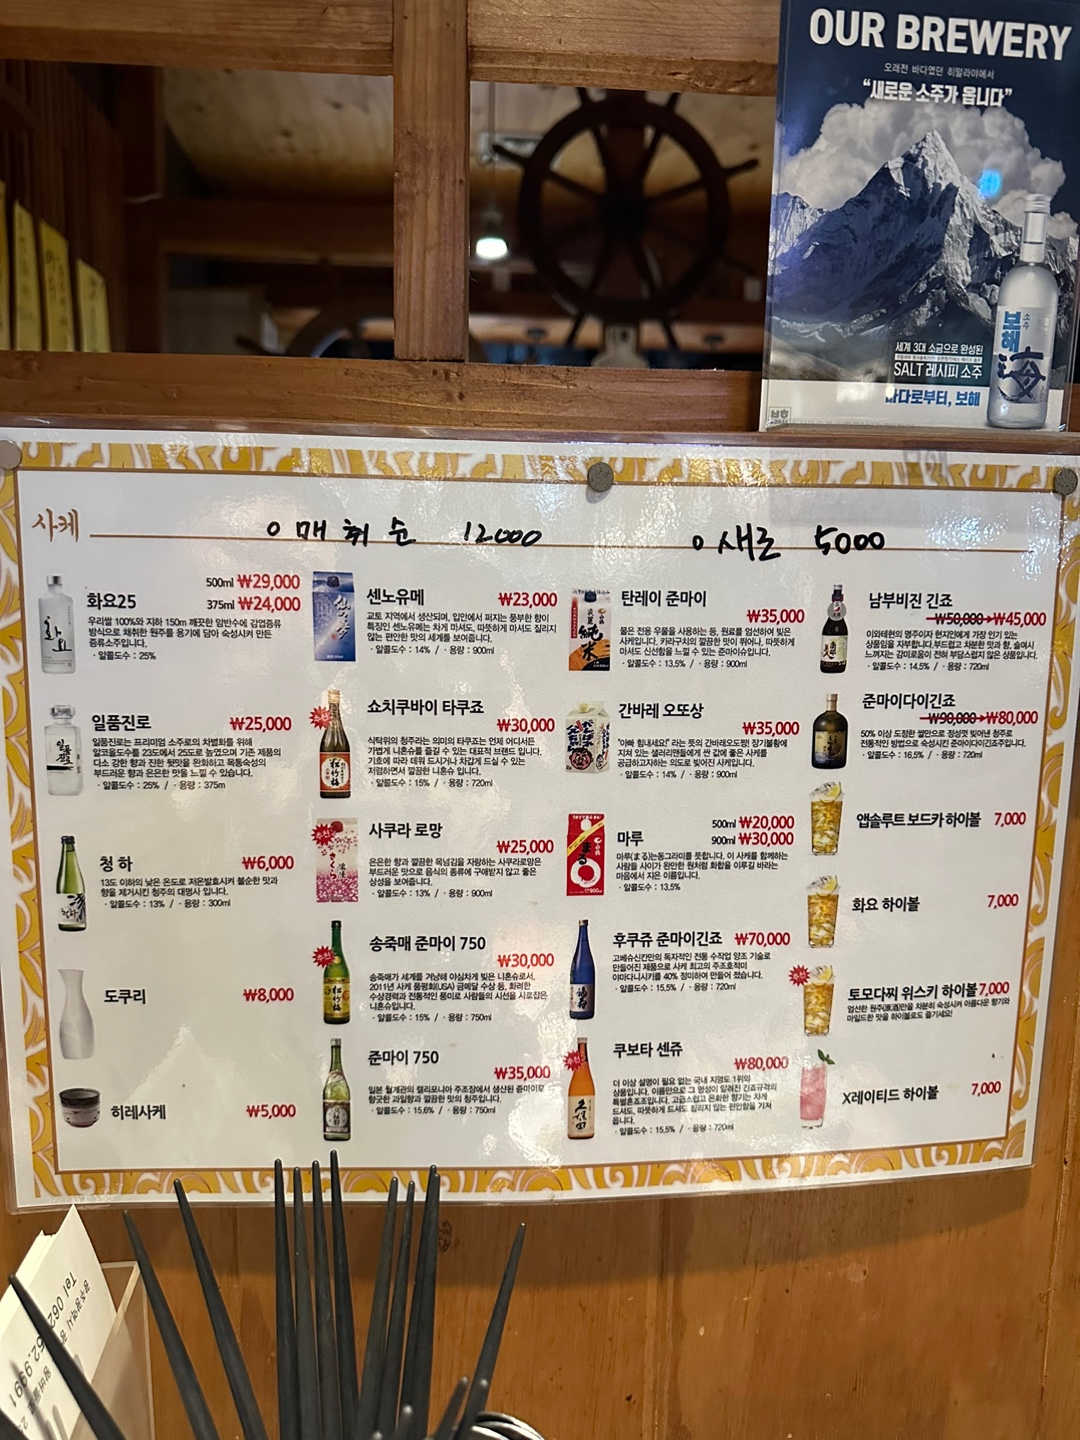 OUR BREWERY
오래전 바다였던 히말라야에서
“새로운 소주가 옵니다”
소주
보해
海
세계 3대 소금으로 완성된
SALT 레시피 소주
바다로부터, 보해
사케
o 매취순 12000
o 새로 5000
화요25
500ml ₩29,000
375ml ₩24,000
우리쌀 100%와 지하 150m 깨끗한 암반수에 감압증류
방식으로 채취한 원주를 용기에 담아 숙성시켜 만든
증류소주입니다.
· 알콜도수 : 25%
일품진로 ₩25,000
일품진로는 프리미엄 소주로의 차별화를 위해
알코올도수를 23도에서 25도로 높였으며 기존 제품의
다소 강한 향과 진한 뒷맛을 완화하고 목통숙성의
부드러운 향과 은은한 맛을 느낄 수 있습니다.
· 알콜도수 : 25% / · 용량 : 375m
청 하 ₩6,000
13도 이하의 낮은 온도로 저온발효시켜 불순한 맛과
향을 제거시킨 청주의 대명사 입니다.
· 알콜도수 : 13% / · 용량 : 300ml
도쿠리 ₩8,000
히레사케 ₩5,000
센노유메 ₩23,000
교토 지역에서 생산되며, 입안에서 퍼지는 풍부한 향이
특징인 센노유메는 차게 마셔도, 따뜻하게 마셔도 질리지
않는 편안한 맛의 세계를 보여줍니다.
· 알콜도수 : 14% / · 용량 : 900ml
추천
쇼치쿠바이 타쿠죠
₩30,000
식탁위의 청주라는 의미의 타쿠죠는 언제 어디서든
가볍게 니혼슈를 즐길 수 있는 대표적 브랜드 입니다.
기호에 따라 데워 드시거나 차갑게 드실 수 있는
저렴하면서 깔끔한 니혼슈 입니다.
· 알콜도수 : 15% / · 용량 : 720ml
추천
사쿠라 로망
₩25,000
은은한 향과 깔끔한 목넘김을 자랑하는 사쿠라로망은
부드러운 맛으로 음식의 종류에 구애받지 않고 좋은
상성을 보여줍니다.
· 알콜도수 : 13% / · 용량 : 900ml
추천
송죽매 준마이 750
₩30,000
송죽매가 세계를 겨냥해 야심차게 빚은 니혼슈로서,
2011년 사케 품평회(USA) 금메달 수상 등, 화려한
수상경력과 전통적인 풍미로 사람들의 시선을 사로잡은
니혼슈입니다.
· 알콜도수 : 15% / · 용량 : 750ml
준마이 750
₩35,000
일본 월계관의 캘리포니아 주조장에서 생산된 준마이로
향긋한 과일향과 깔끔한 맛의 청주입니다.
· 알콜도수 : 15,6% / · 용량 : 750ml
탄레이 준마이
₩35,000
물은 전용 우물을 사용하는 등, 원료를 엄선하여 빚은
사케입니다. 카라구치의 깔끔한 맛이 뛰어나, 따뜻하게
마셔도 신선함을 느낄 수 있는 준마이슈입니다.
· 알콜도수 : 13,5% / · 용량 : 900ml
간바레 오또상
₩35,000
“아빠 힘내세요!” 라는 뜻의 간바레오또짱! 장기불황에
지쳐 있는 샐러리맨들에게 싼 값에 좋은 사케를
공급하고자하는 의도로 빚어진 사케입니다.
· 알콜도수 : 14% / · 용량 : 900ml
마루
500ml ₩20,000
900ml ₩30,000
마루(まる)는동그라미를 뜻합니다. 이 사케를 함께하는
사람들 사이가 완만한 원처럼 화합을 이루길 바라는
마음에서 지은 이름입니다.
· 알콜도수 : 13,5%
후쿠쥬 준마이긴죠 ₩70,000
고베슈신칸만의 독자적인 전통 수작업 양조 기술로
만들어진 제품으로 사케 최고의 주조호적미
야마다니시키를 40% 정미하여 만들어 졌습니다.
· 알콜도수 : 15,5% / · 용량 : 720ml
추천
쿠보타 센쥬
₩80,000
더 이상 설명이 필요 없는 국내 지명도 1위의
상품입니다. 이름만으로 그 명성이 알려진 긴죠규격의
특별혼죠조입니다. 고급스럽고 온화한 향기는 차게
드셔도, 따뜻하게 드셔도 질리지 않는 편안함을 가져
옵니다.
· 알콜도수 : 15,5% / · 용량 : 720ml
남부비진 긴죠
₩50,000→₩45,000
이와테현의 명주이자 현지인에게 가장 인기 있는
상품임을 자부합니다.부드럽고 차분한 맛과 향, 슬며시
느껴지는 감미로움이 전혀 부담스럽지 않은 상품입니다.
· 알콜도수 : 14,5% / · 용량 : 720ml
준마이다이긴죠
₩90,000→₩80,000
50% 이상 도정한 쌀만으로 정성껏 빚어낸 청주로
전통적인 방법으로 숙성시킨 준마이다이긴죠입니다.
· 알콜도수 : 16,5% / · 용량 : 720ml
앱솔루트 보드카 하이볼 7,000
화요 하이볼 7,000
추천
토모다찌 위스키 하이볼 7,000
엄선한 원주(原酒)만을 차분히 숙성시켜 아름다운 향기와
마일드한 맛을 하이볼로도 즐기세요!
X레이티드 하이볼 7,000